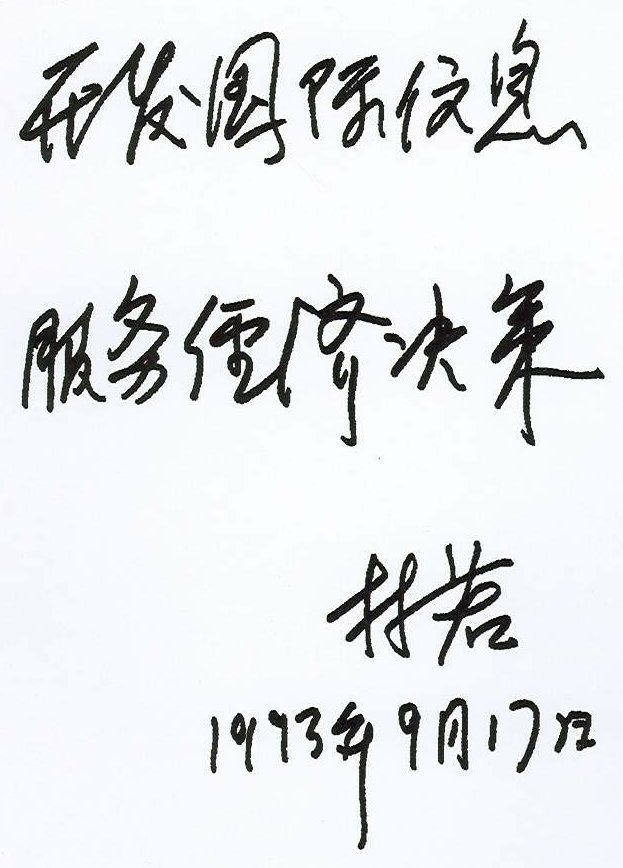 开发国际信息
服务经济决策
林若
1993年9月17日